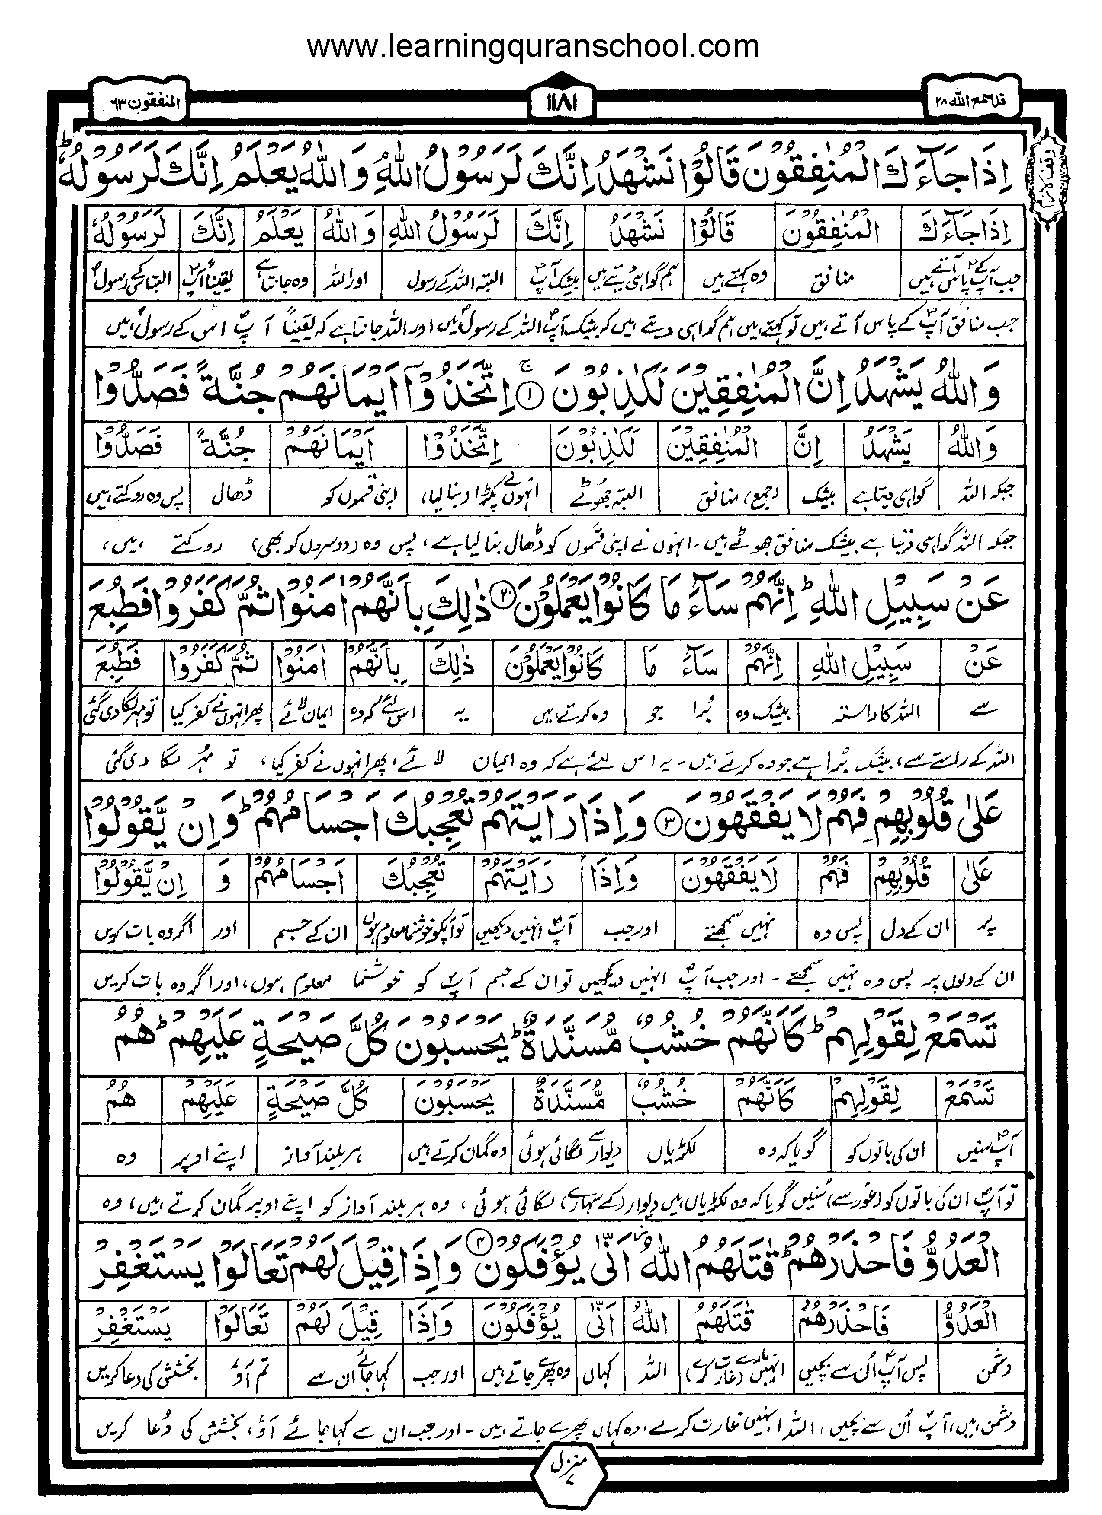 www.learningquranschool.com
المنفقون ٦٣
١١٨١
قد سمع الله ٢٨
اِذَا جَآءَكَ الْمُنٰفِقُوْنَ قَالُوْا نَشْهَدُ اِنَّكَ لَرَسُوْلُ اللّٰهِ وَاللّٰهُ يَعْلَمُ اِنَّكَ لَرَسُوْلُهٗ ؕ
اِذَا جَآءَكَ الْمُنٰفِقُوْنَ قَالُوْا نَشْهَدُ اِنَّكَ لَرَسُوْلُ اللّٰهِ وَاللّٰهُ يَعْلَمُ اِنَّكَ لَرَسُوْلُهٗ
جب آپؐ کے پاس آتے ہیں منافق وہ کہتے ہیں ہم گواہی دیتے ہیں بیشک آپؐ البتہ اللہ کے رسول اور اللہ وہ جانتا ہے یقیناً آپؐ البتہ اس کے رسولؐ
جب منافق آپؐ کے پاس آتے ہیں تو کہتے ہیں ہم گواہی دیتے ہیں کہ بیشک آپؐ اللہ کے رسول ہیں اور اللہ جانتا ہے کہ یقیناً آپؐ اس کے رسولؐ ہیں
وَاللّٰهُ يَشْهَدُ اِنَّ الْمُنٰفِقِيْنَ لَكٰذِبُوْنَ ۚ ﴿۱﴾ اِتَّخَذُوْۤا اَيْمَانَهُمْ جُنَّةً فَصَدُّوْا
وَاللّٰهُ يَشْهَدُ اِنَّ الْمُنٰفِقِيْنَ لَكٰذِبُوْنَ اِتَّخَذُوْۤا اَيْمَانَهُمْ جُنَّةً فَصَدُّوْا
جبکہ اللہ گواہی دیتا ہے بیشک (جمع) منافق البتہ جھوٹے انہوں نے پکڑا (بنا لیا) اپنی قسموں کو ڈھال پس وہ روکتے ہیں
جبکہ اللہ گواہی دیتا ہے بیشک منافق جھوٹے ہیں۔ انہوں نے اپنی قسموں کو ڈھال بنا لیا ہے، پس وہ (دوسروں کو بھی) روکتے ہیں،
عَنْ سَبِيْلِ اللّٰهِ ؕ اِنَّهُمْ سَآءَ مَا كَانُوْا يَعْمَلُوْنَ ﴿۲﴾ ذٰلِكَ بِاَنَّهُمْ اٰمَنُوْا ثُمَّ كَفَرُوْا فَطُبِعَ
عَنْ سَبِيْلِ اللّٰهِ اِنَّهُمْ سَآءَ مَا كَانُوْا يَعْمَلُوْنَ ذٰلِكَ بِاَنَّهُمْ اٰمَنُوْا ثُمَّ كَفَرُوْا فَطُبِعَ
سے اللہ کا راستہ بیشک وہ بُرا جو وہ کرتے ہیں یہ اس لئے کہ وہ ایمان لائے پھر انہوں نے کفر کیا تو مہر لگا دی گئی
اللہ کے راستے سے، بیشک بُرا ہے جو وہ کرتے ہیں۔ یہ اس لئے ہے کہ وہ ایمان لائے، پھر انہوں نے کفر کیا، تو مہر لگا دی گئی
عَلٰى قُلُوْبِهِمْ فَهُمْ لَا يَفْقَهُوْنَ ﴿۳﴾ وَاِذَا رَاَيْتَهُمْ تُعْجِبُكَ اَجْسَامُهُمْ ؕ وَاِنْ يَّقُوْلُوْا
عَلٰى قُلُوْبِهِمْ فَهُمْ لَا يَفْقَهُوْنَ وَاِذَا رَاَيْتَهُمْ تُعْجِبُكَ اَجْسَامُهُمْ وَ اِنْ يَّقُوْلُوْا
پر ان کے دل پس وہ نہیں سمجھتے اور جب آپؐ انہیں دیکھیں تو آپؐ کو خوشنما معلوم ہوں ان کے جسم اور اگر وہ بات کریں
ان کے دلوں پر پس وہ نہیں سمجھتے۔ اور جب آپؐ انہیں دیکھیں تو ان کے جسم آپؐ کو خوشنما معلوم ہوں، اور اگر وہ بات کریں
تَسْمَعْ لِقَوْلِهِمْ ؕ كَاَنَّهُمْ خُشُبٌ مُّسَنَّدَةٌ ؕ يَحْسَبُوْنَ كُلَّ صَيْحَةٍ عَلَيْهِمْ ؕ هُمُ
تَسْمَعْ لِقَوْلِهِمْ كَاَنَّهُمْ خُشُبٌ مُّسَنَّدَةٌ يَحْسَبُوْنَ كُلَّ صَيْحَةٍ عَلَيْهِمْ هُمُ
آپؐ سنیں ان کی باتوں کو گویا کہ وہ لکڑیاں دیوار سے لگائی ہوئی وہ گمان کرتے ہیں ہر بلند آواز اپنے اوپر وہ
تو آپؐ ان کی باتوں کو (غور سے) سُنیں گویا کہ وہ لکڑیاں ہیں دیوار (کے سہارے) لگائی ہوئی، وہ ہر بلند آواز کو اپنے اوپر گمان کرتے ہیں، وہ
الْعَدُوُّ فَاحْذَرْهُمْ ؕ قٰتَلَهُمُ اللّٰهُ ۫ اَنّٰى يُؤْفَكُوْنَ ﴿۴﴾ وَاِذَا قِيْلَ لَهُمْ تَعَالَوْا يَسْتَغْفِرْ
الْعَدُوُّ فَاحْذَرْهُمْ قٰتَلَهُمُ اللّٰهُ اَنّٰى يُؤْفَكُوْنَ وَاِذَا قِيْلَ لَهُمْ تَعَالَوْا يَسْتَغْفِرْ
دشمن پس آپؐ اُن سے بچیں اللہ کہاں وہ پھرے جاتے ہیں اور جب کہا جائے ان سے تم آؤ بخشش کی دعا کریں
دشمن ہیں، آپؐ اُن سے بچیں، اللہ انہیں غارت کرے، وہ کہاں پھرے جاتے ہیں۔ اور جب ان سے کہا جائے آؤ، بخشش کی دُعا کریں
منزل ٧